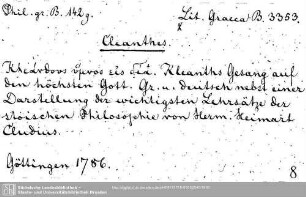 Phil. gr. B. 142 g.
Lit. Graeca B. 3353.
Cleanthes.
Κλεάνθους ὕμνος εἰς Kleanths Gesang auf
den höchsten Gott. Gr. u. deutsch nebst einer
Darstellung der wichtigsten Lehrsätze der
stoischen Philosophie von Herm. Heimart
Cludius.
Göttingen 1786.
8